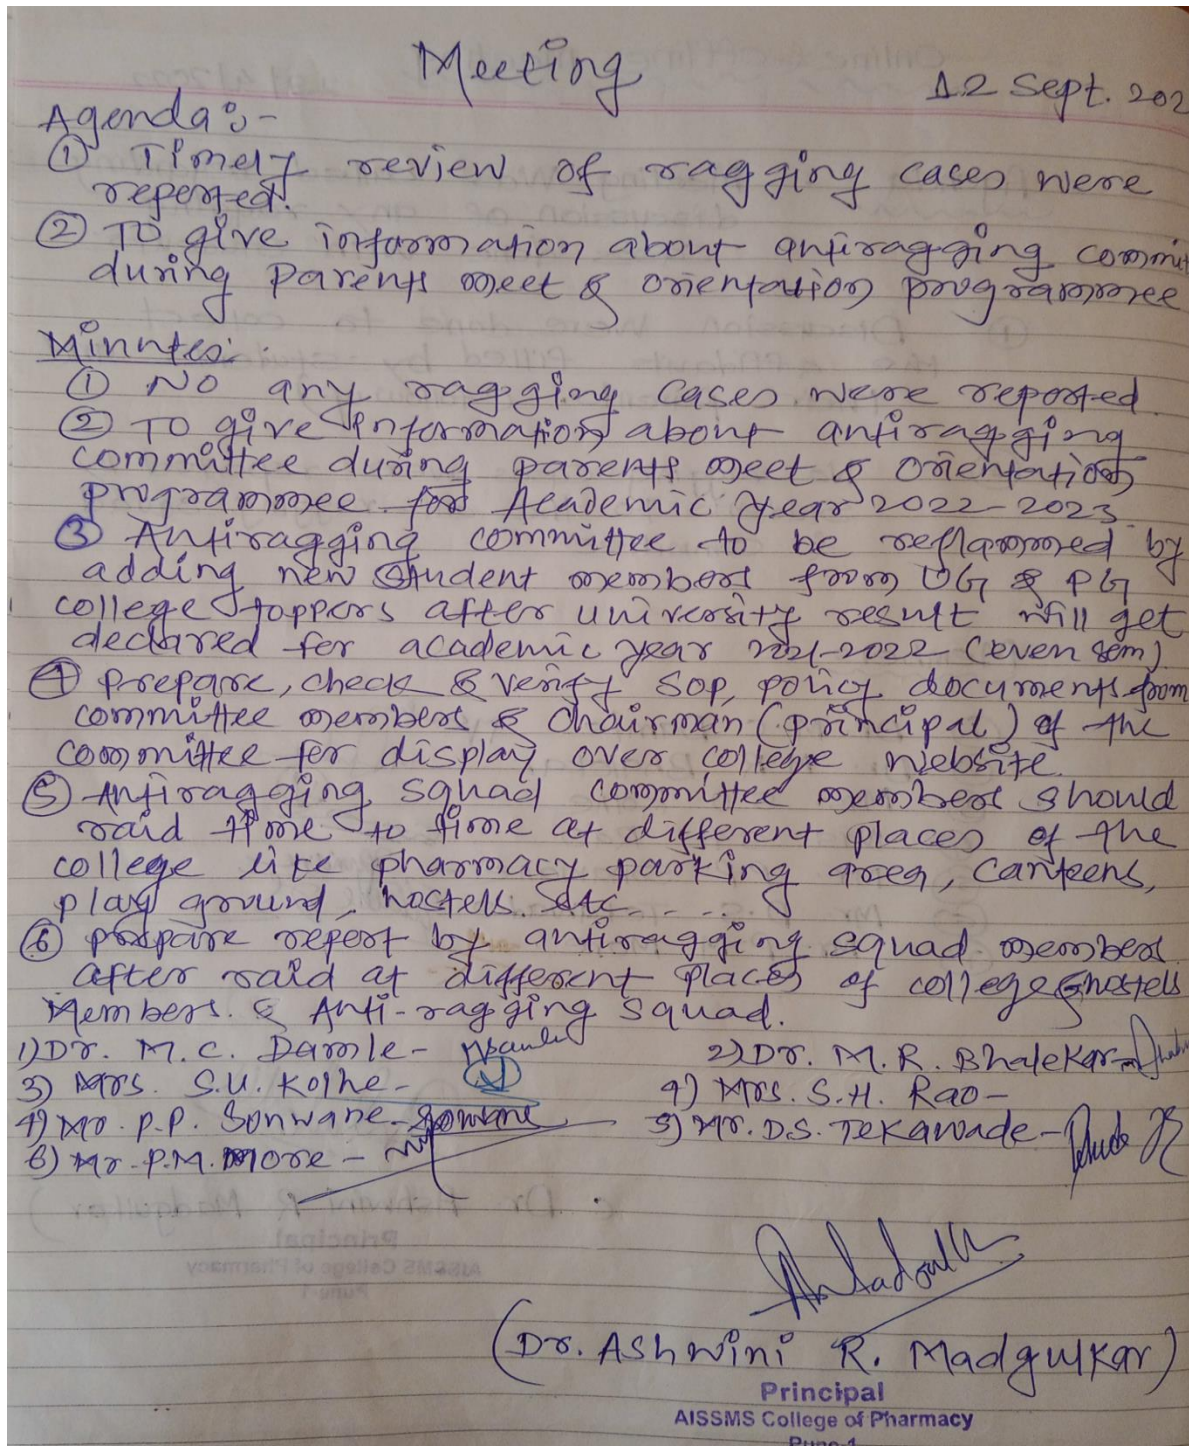 Meeting
12 Sept. 202
Agenda:-
① Timely review of ragging cases were
reported.
② To give information about antiragging commit
during Parents meet & orientation programmee
Minutes:
① No any ragging cases were reported.
② To give information about antiragging
committee during parents meet & orientation
programmee for Academic year 2022-2023.
③ Antiragging committee to be reflammed by
adding new student members from UG & PG
college toppers after university result will get
declared for academic year 2021-2022 (even sem)
④ Prepare, check & verify SOP, policy documents from
committee members & Chairman (principal) of the
committee for display over college website.
⑤ Antiragging squad committee members should
raid time to time at different places of the
college like pharmacy parking area, canteens,
play ground, hostels. etc....
⑥ prepare report by antiragging squad members
after raid at different places of college & hostels
Members. & Anti-ragging squad.
1) Dr. M.C. Damle- 2) Dr. M.R. Bhalekar-
3) Mrs. S.U. Kolhe- 4) Mrs. S.H. Rao-
4) Mr. P.P. Sonwane- 5) Mr. D.S. Tekawade-
6) Mr. P.M. More-
(Dr. Ashwini R. Madgulkar)
Principal
AISSMS College of Pharmacy
Pune-1